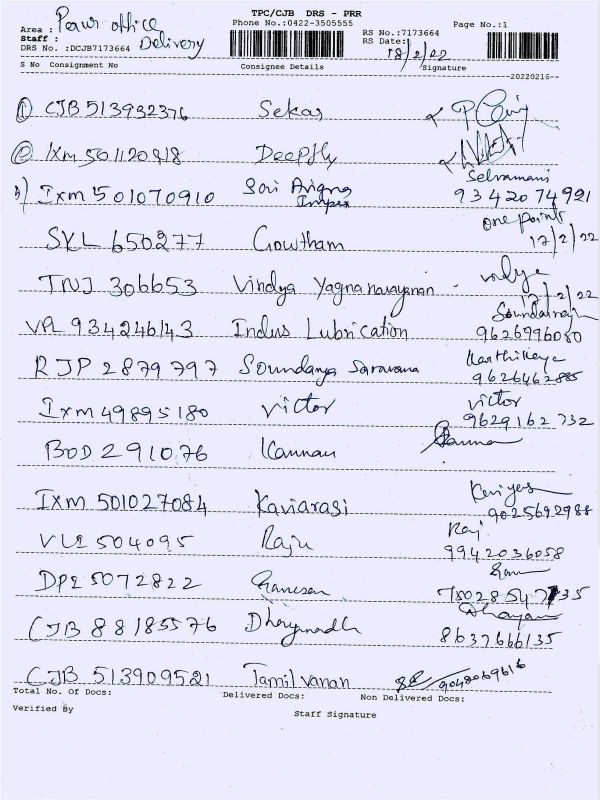 TPC/CJB DRS - PRR
Area : Peur office
Phone No.:0422-3505555
Page No.:1
Staff :
Delivery
RS No.:7173664
DRS No. :DCJB7173664
RS Date:
18/2/22
S No Consignment No Consignee Details Signature
20220216
① CJB 513932376 Sekar
② IXM 501120818 Deepthy
3) IXM 501070910 Sri Arigna Impex Selvamani 9342074921
SKL 650277 Gowtham one point 17/2/22
TNJ 306653 Vindya Yagnanarayanan vidya /2/22
VPL 934246143 Indus Lubrication Soundaraj 9626996080
RJP 2879797 Soundarya Saravana Karthikeya 9626462885
IXM 49895180 Victor victor 9629162732
BOD 291076 Kannan Kannan
IXM 501027084 Kaviarasi 9025692988
VLL 504095 Raju Raj 9942036058
DPL 5072822 Ganesan
CJB 88185576 Dhayanadh Dhayan 8637666135
CJB 513909521 Tamilvanan 9043069616
Total No. Of Docs: Delivered Docs: Non Delivered Docs:
Verified By
Staff Signature